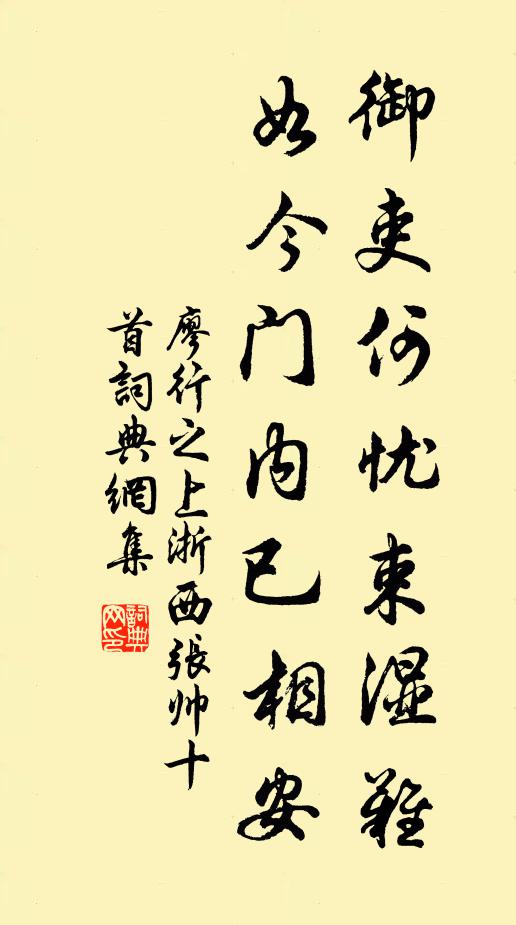 御吏何忧束湿難
如今門内已相安
廖行之上浙西張帅十
首詞典網集
詞典网印